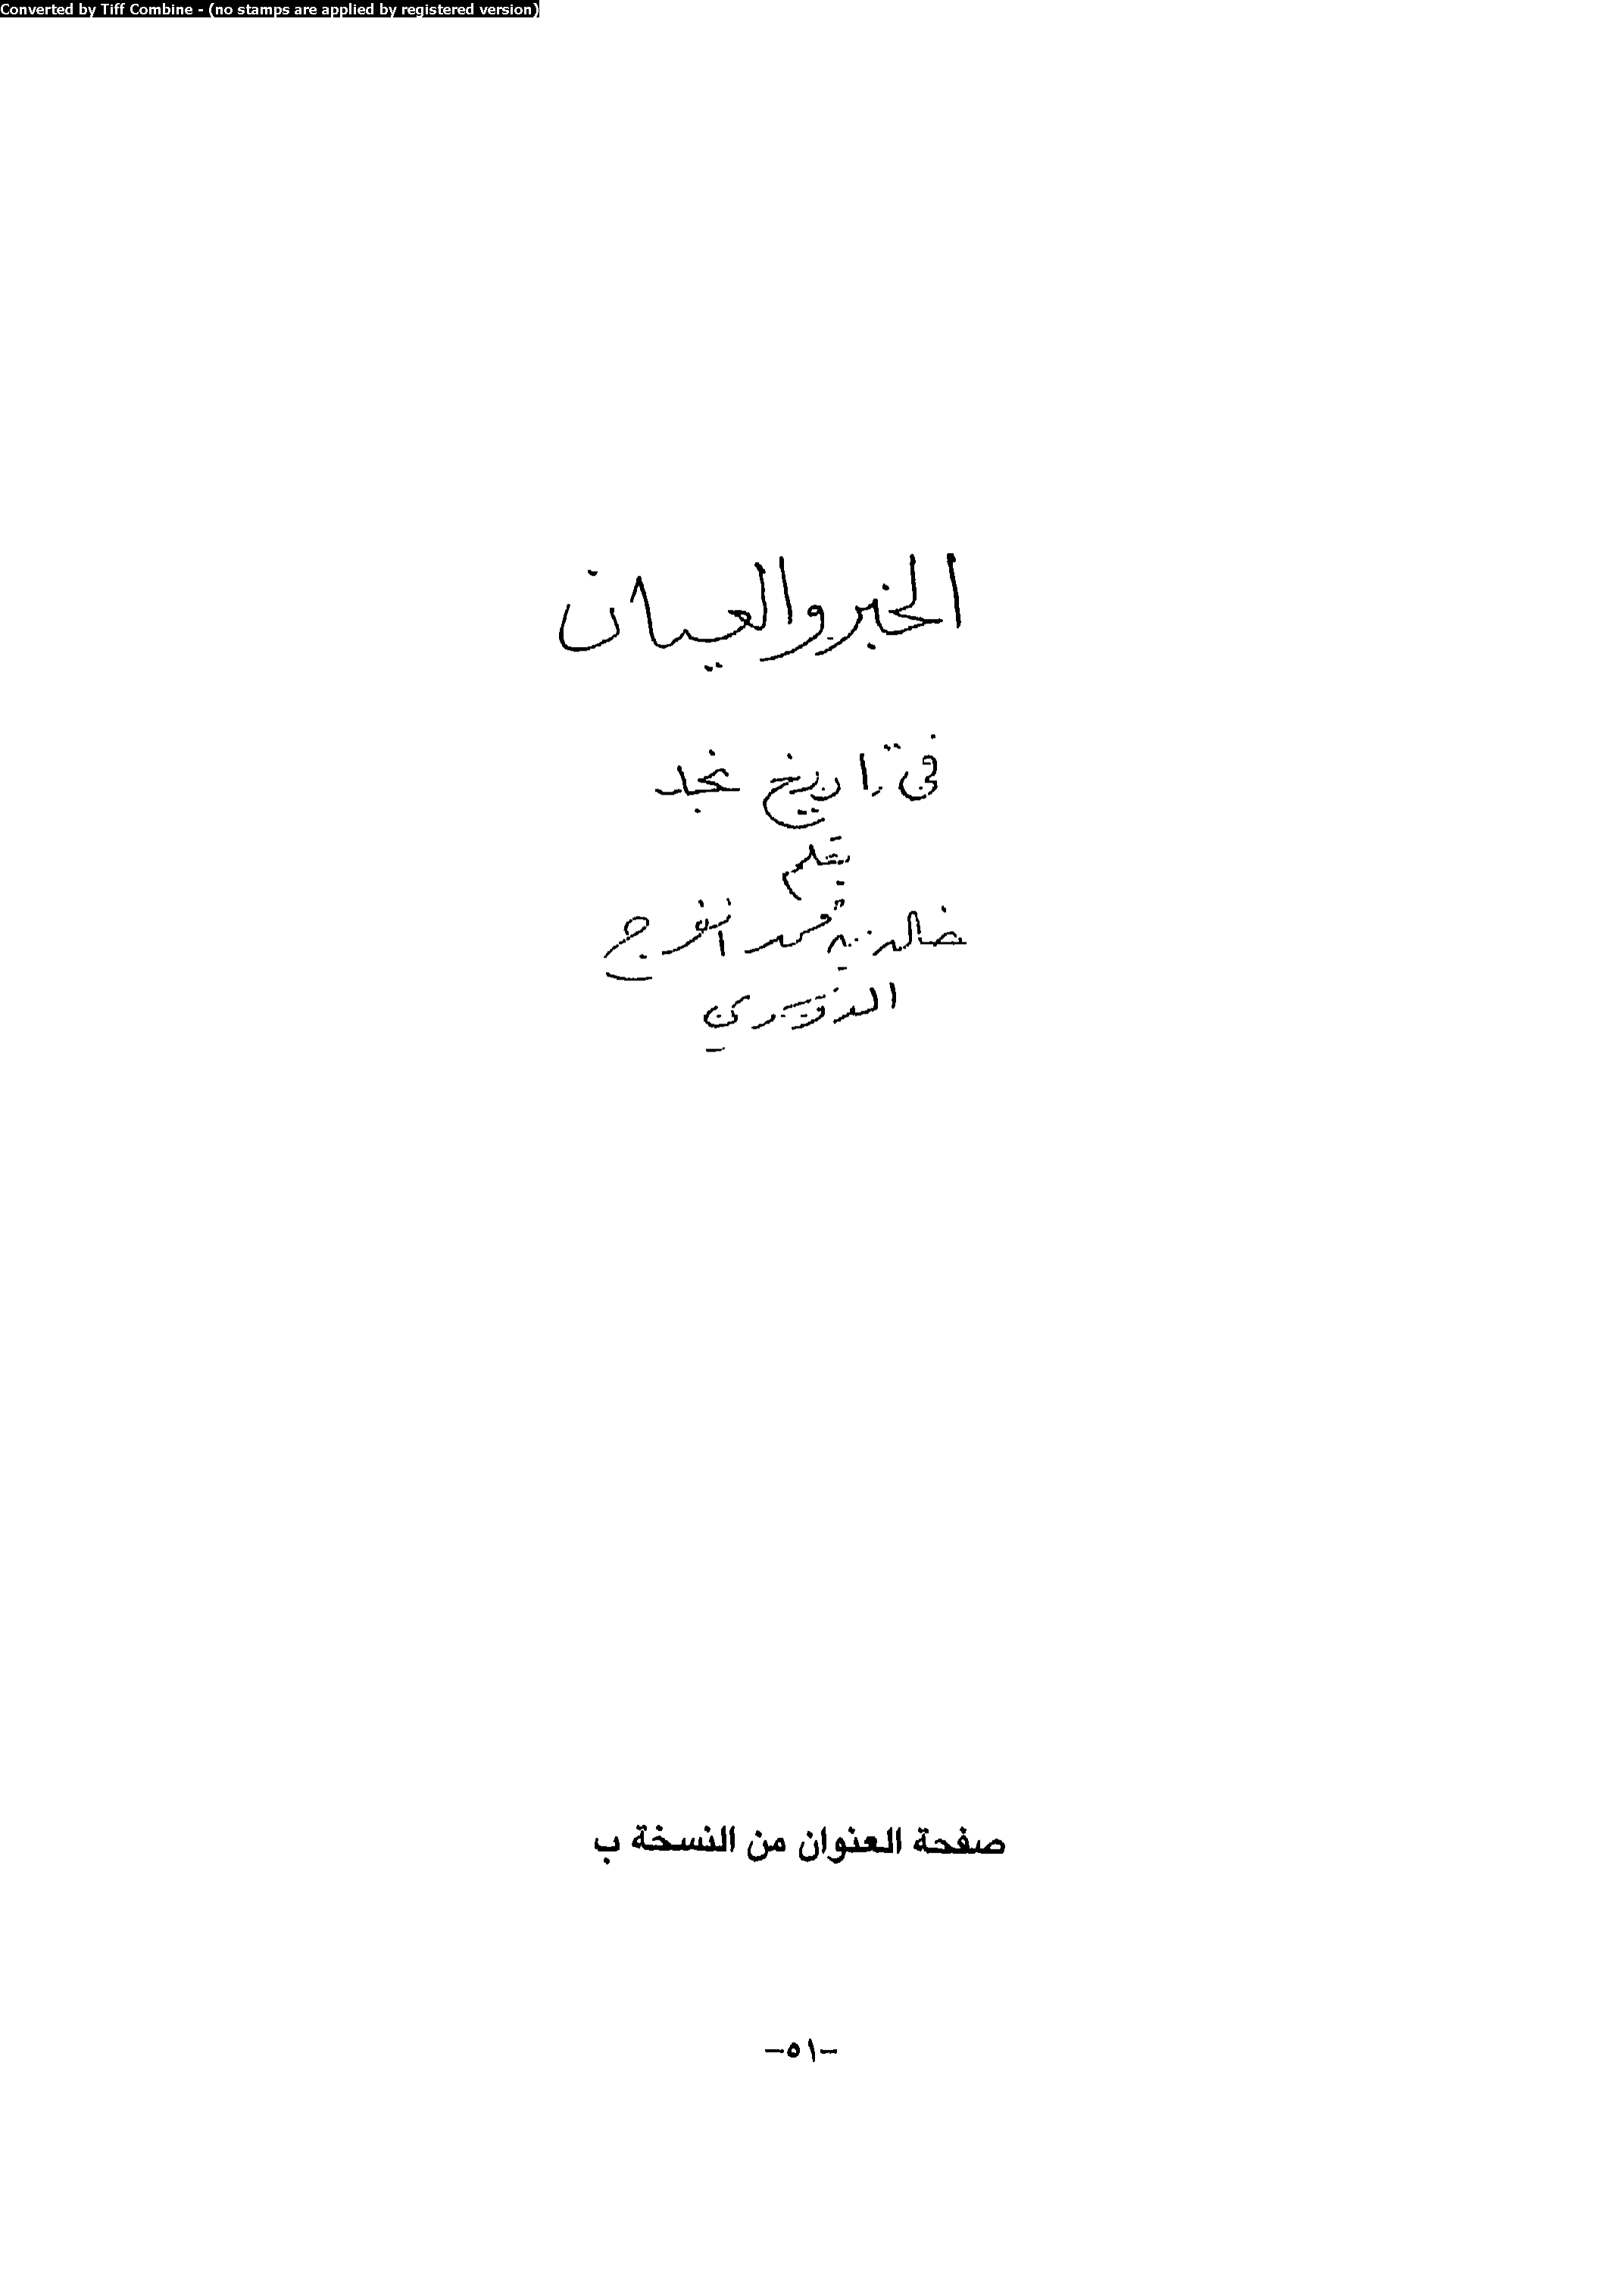 Converted by Tiff Combine - (no stamps are applied by registered version)
الخبر والعيان
في تاريخ نجد
بقلم
خالد بن محمد الفرج
الدوسري
صفحة العنوان من النسخة ب
-٥١-